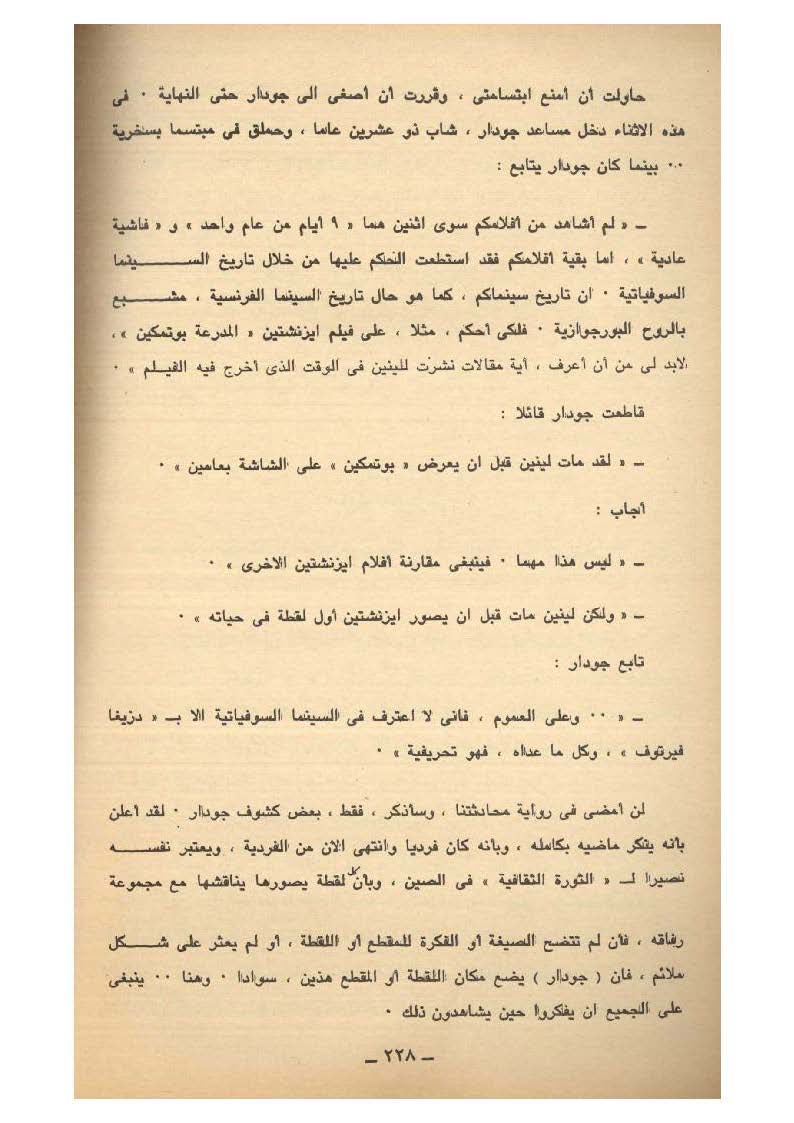 حاولت أن أمنع ابتسامتى ، وقررت أن أصغى الى جودار حتى النهاية · فى
هذه الاثناء دخل مساعد جودار ، شاب ذو عشرين عاما ، وحملق فى مبتسما بسخرية
·· بينما كان جودار يتابع :
ــ « لم أشاهد من أفلامكم سوى اثنين هما « ٩ أيام من عام واحد » و « فاشية
عادية » ، اما بقية أفلامكم فقد استطعت الحكم عليها من خلال تاريخ الســـــينما
السوفياتية · ان تاريخ سينماكم ، كما هو حال تاريخ السينما الفرنسية ، مشـــبع
بالروح البورجوازية · فلكى أحكم ، مثلا ، على فيلم ايزنشتين « المدرعة بوتمكين » ،
لابد لى من أن أعرف ، أية مقالات نشرت للينين فى الوقت الذى أخرج فيه الفيــلم » ·
قاطعت جودار قائلا :
ــ « لقد مات لينين قبل ان يعرض « بوتمكين » على الشاشة بعامين » ·
أجاب :
ــ « ليس هذا مهما · فينبغى مقارنة أفلام ايزنشتين الاخرى » ·
ــ « ولكن لينين مات قبل ان يصور ايزنشتين أول لقطة فى حياته » ·
تابع جودار :
ــ « ·· وعلى العموم ، فانى لا اعترف فى السينما السوفياتية الا بــ « دزيغا
فيرتوف » ، وكل ما عداه ، فهو تحريفية » ·
لن أمضى فى رواية محادثتنا ، وسأذكر ، فقط ، بعض كشوف جودار · لقد أعلن
بأنه ينكر ماضيه بكامله ، وبأنه كان فرديا وانتهى الان من الفردية ، ويعتبر نفســـه
نصيرا لــ « الثورة الثقافية » فى الصين ، وبأن كل لقطة يصورها يناقشها مع مجموعة
رفاقه ، فأن لم تتضح الصيغة أو الفكرة للمقطع أو اللقطة ، أو لم يعثر على شـــكل
ملائم ، فان ( جودار ) يضع مكان اللقطة أو المقطع هذين ، سوادا · وهنا ·· ينبغى
على الجميع ان يفكروا حين يشاهدون ذلك ·
ــ ٢٢٨ ــ